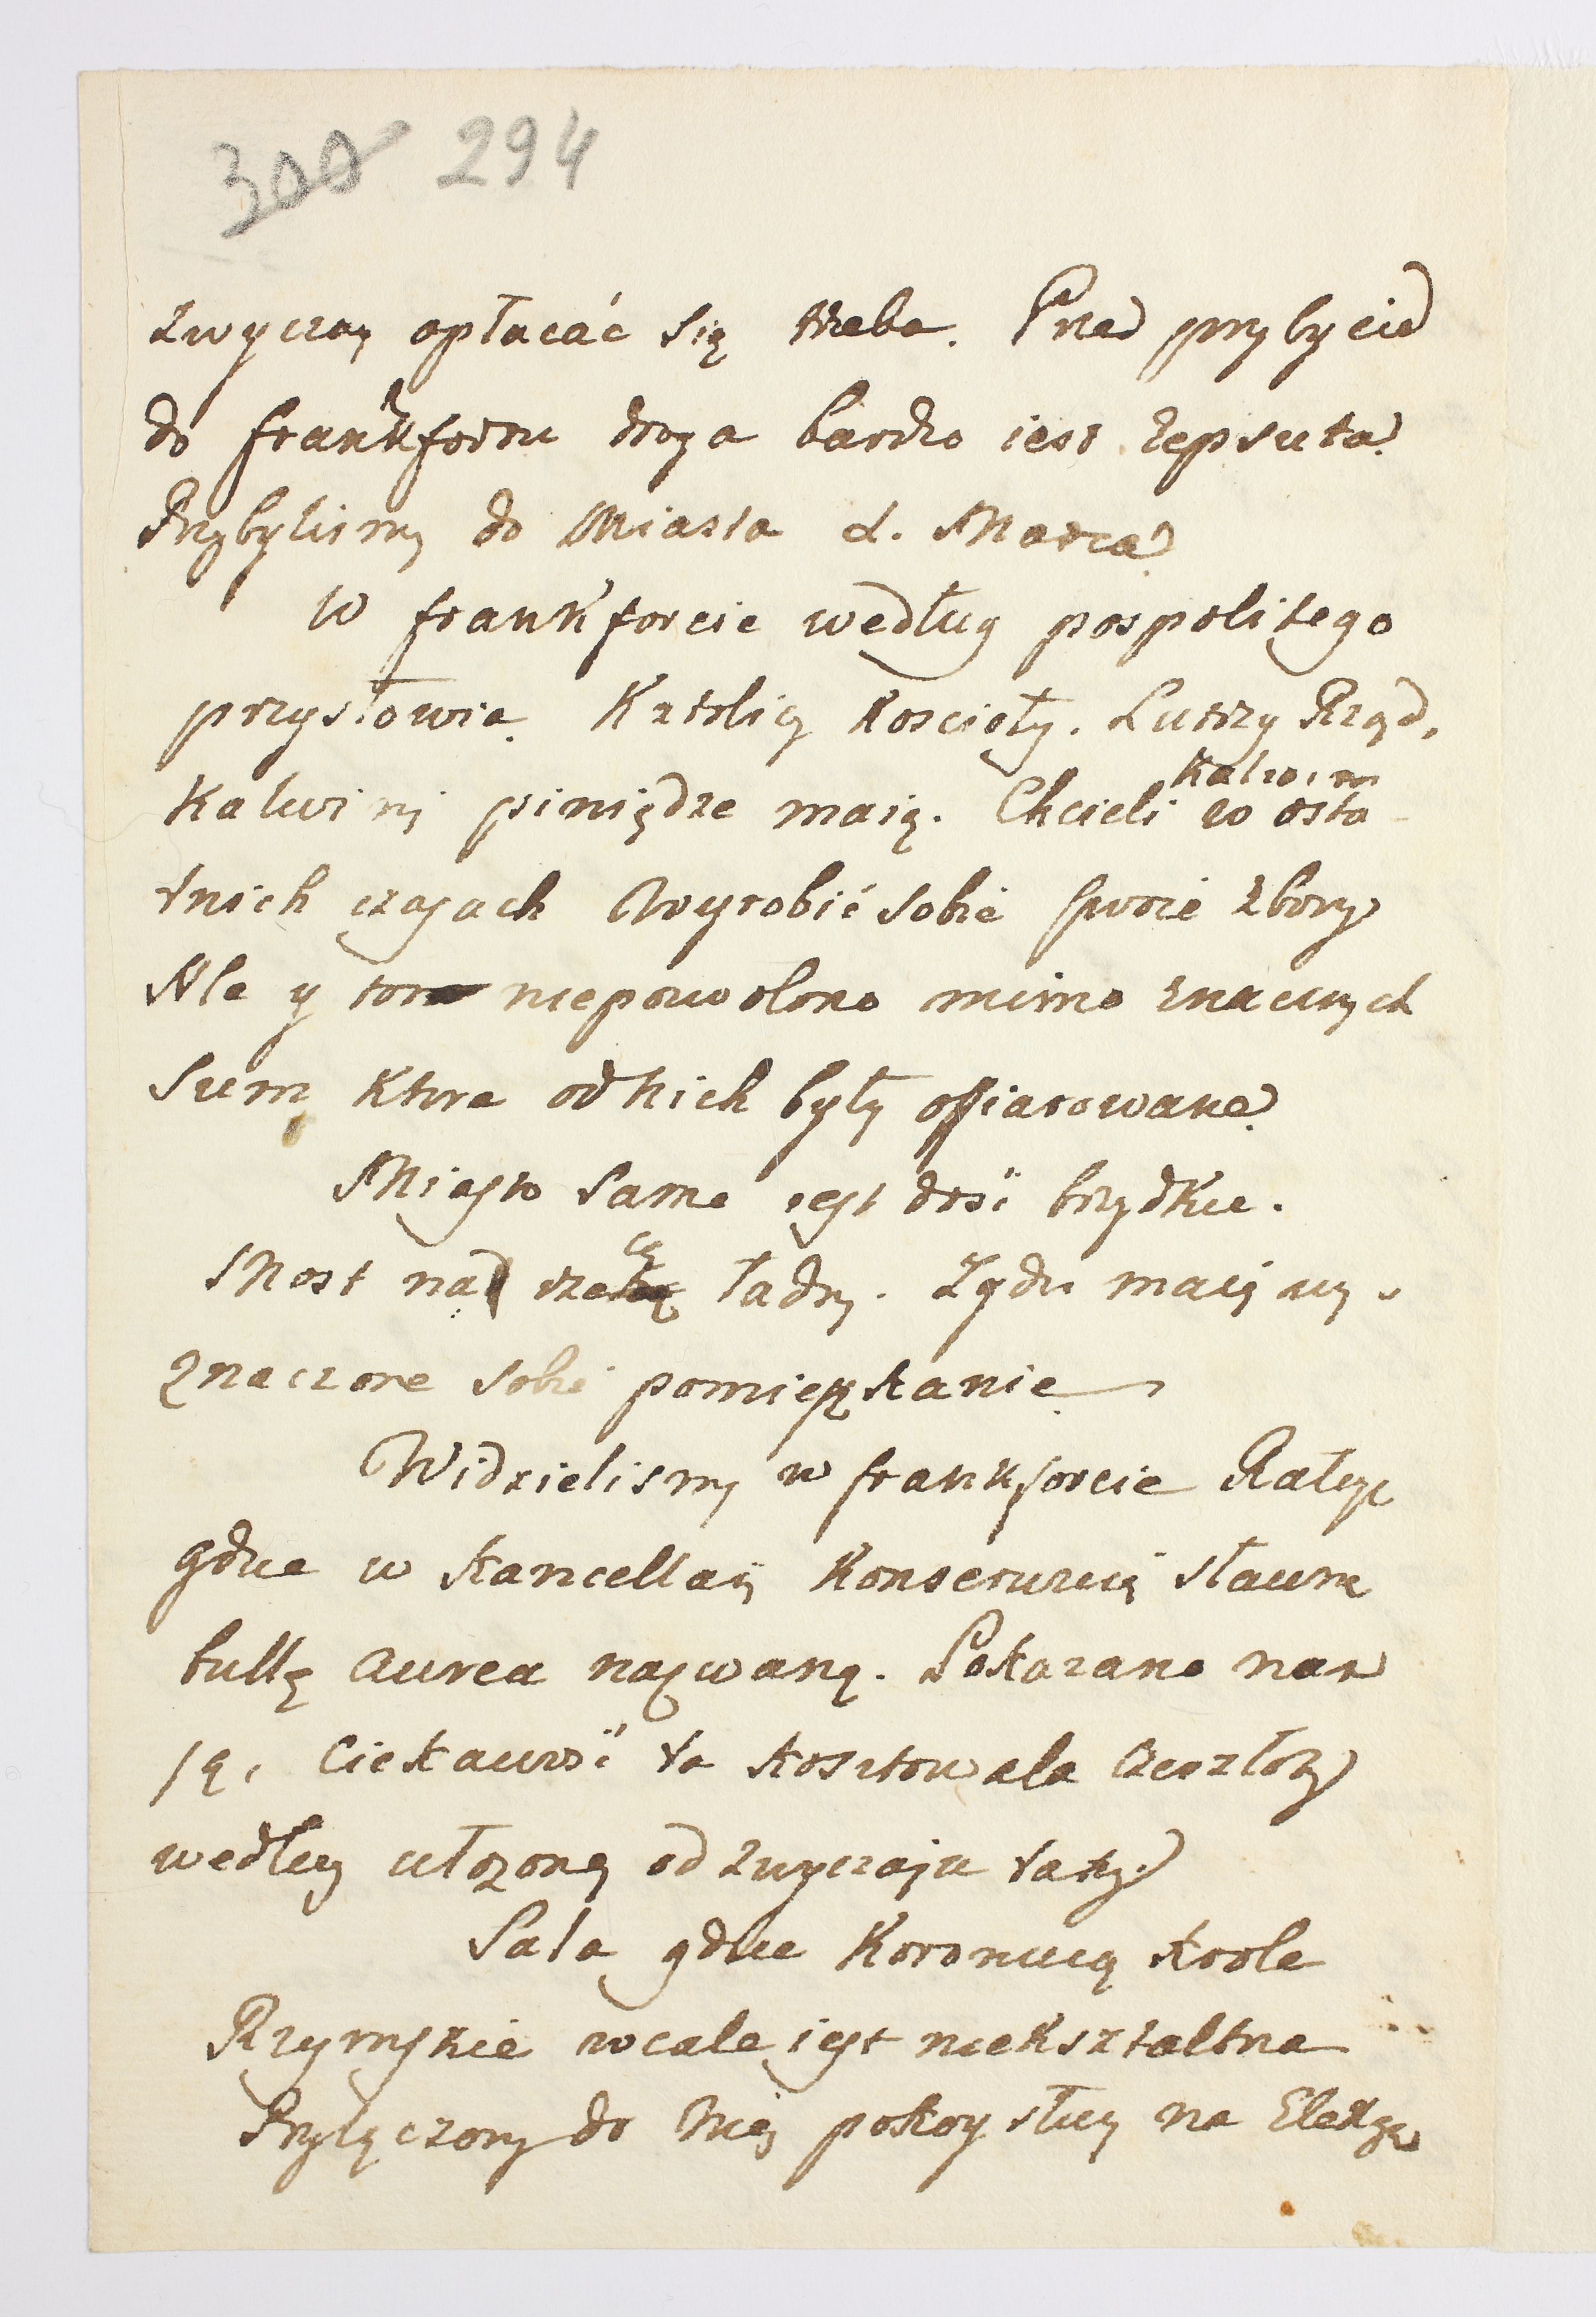 300 294
zwyczay opłacać się trzeba. Przed przybycie
do frankfortu droga bardzo iest zepsuta.
Przybylismy do Miasta d. Marca
W frankforcie według pospolitego
przysłowia Katolicy Koscioły. Lutrzy Rząd,
Kalwini piniądze maią. Chcieli Kalwini w osta-
tnich czasach Wyrobić sobie swoie zbory
Ale y to niepozwolono mimo znacznych
Summ ktore od nich były offiarowane
Miasto same iest dosć brzydkie.
Most nad rzeką ładny. Zydzi maią wy-
znaczone sobie pomieszkanie
Widzielismy w frankforcie Ratusz
gdzie w Kancellaryi Konserwuią sławną
bullę aurea nazwaną. Pokazano nam
ią, Ciekawosć ta kosztowala Czer złoty
według ułozoney od zwyczaju taxy
Sala gdzie Koronuią Krole
Rzymskie wcale iest niekształtna
Przyłączony do Niey pokoy służy na Elekcyą